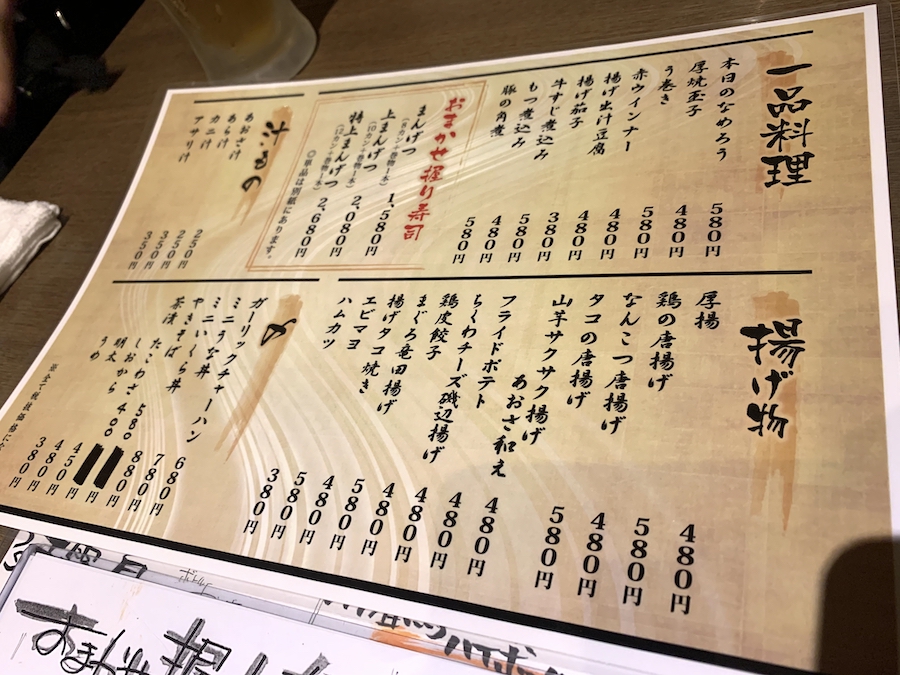 一品料理
本日のなめろう 580円
厚焼玉子 480円
う巻き 580円
赤ウインナー 480円
揚げ出汁豆腐 480円
揚げ茄子 380円
牛すじ煮込み 580円
もつ煮込み 480円
豚の角煮 580円
おまかせ握り寿司
まんげつ 1,580円
(8カン+巻物1本)
上まんげつ 2,080円
(10カン+巻物1本)
特上まんげつ 2,680円
(12カン+巻物1本)
◎単品は別紙にあります。
汁もの
あおさ汁 250円
あら汁 250円
カニ汁 350円
アサリ汁 350円
揚げ物
厚揚 480円
鶏の唐揚げ 580円
なんこつ唐揚げ 480円
タコの唐揚げ 580円
山芋サクサク揚げ
あおさ和え 480円
フライドポテト 480円
ちくわチーズ磯辺揚げ 480円
鶏皮餃子 480円
まぐろ竜田揚げ 580円
揚げタコ焼き 480円
エビマヨ 580円
ハムカツ 380円
〆
ガーリックチャーハン 680円
ミニうな丼 780円
ミニいくら丼 880円
やきそば
茶漬
たこわさ 580 円
しおから 400 円
明太 450円
うめ
480円
380円
おまかせ握り